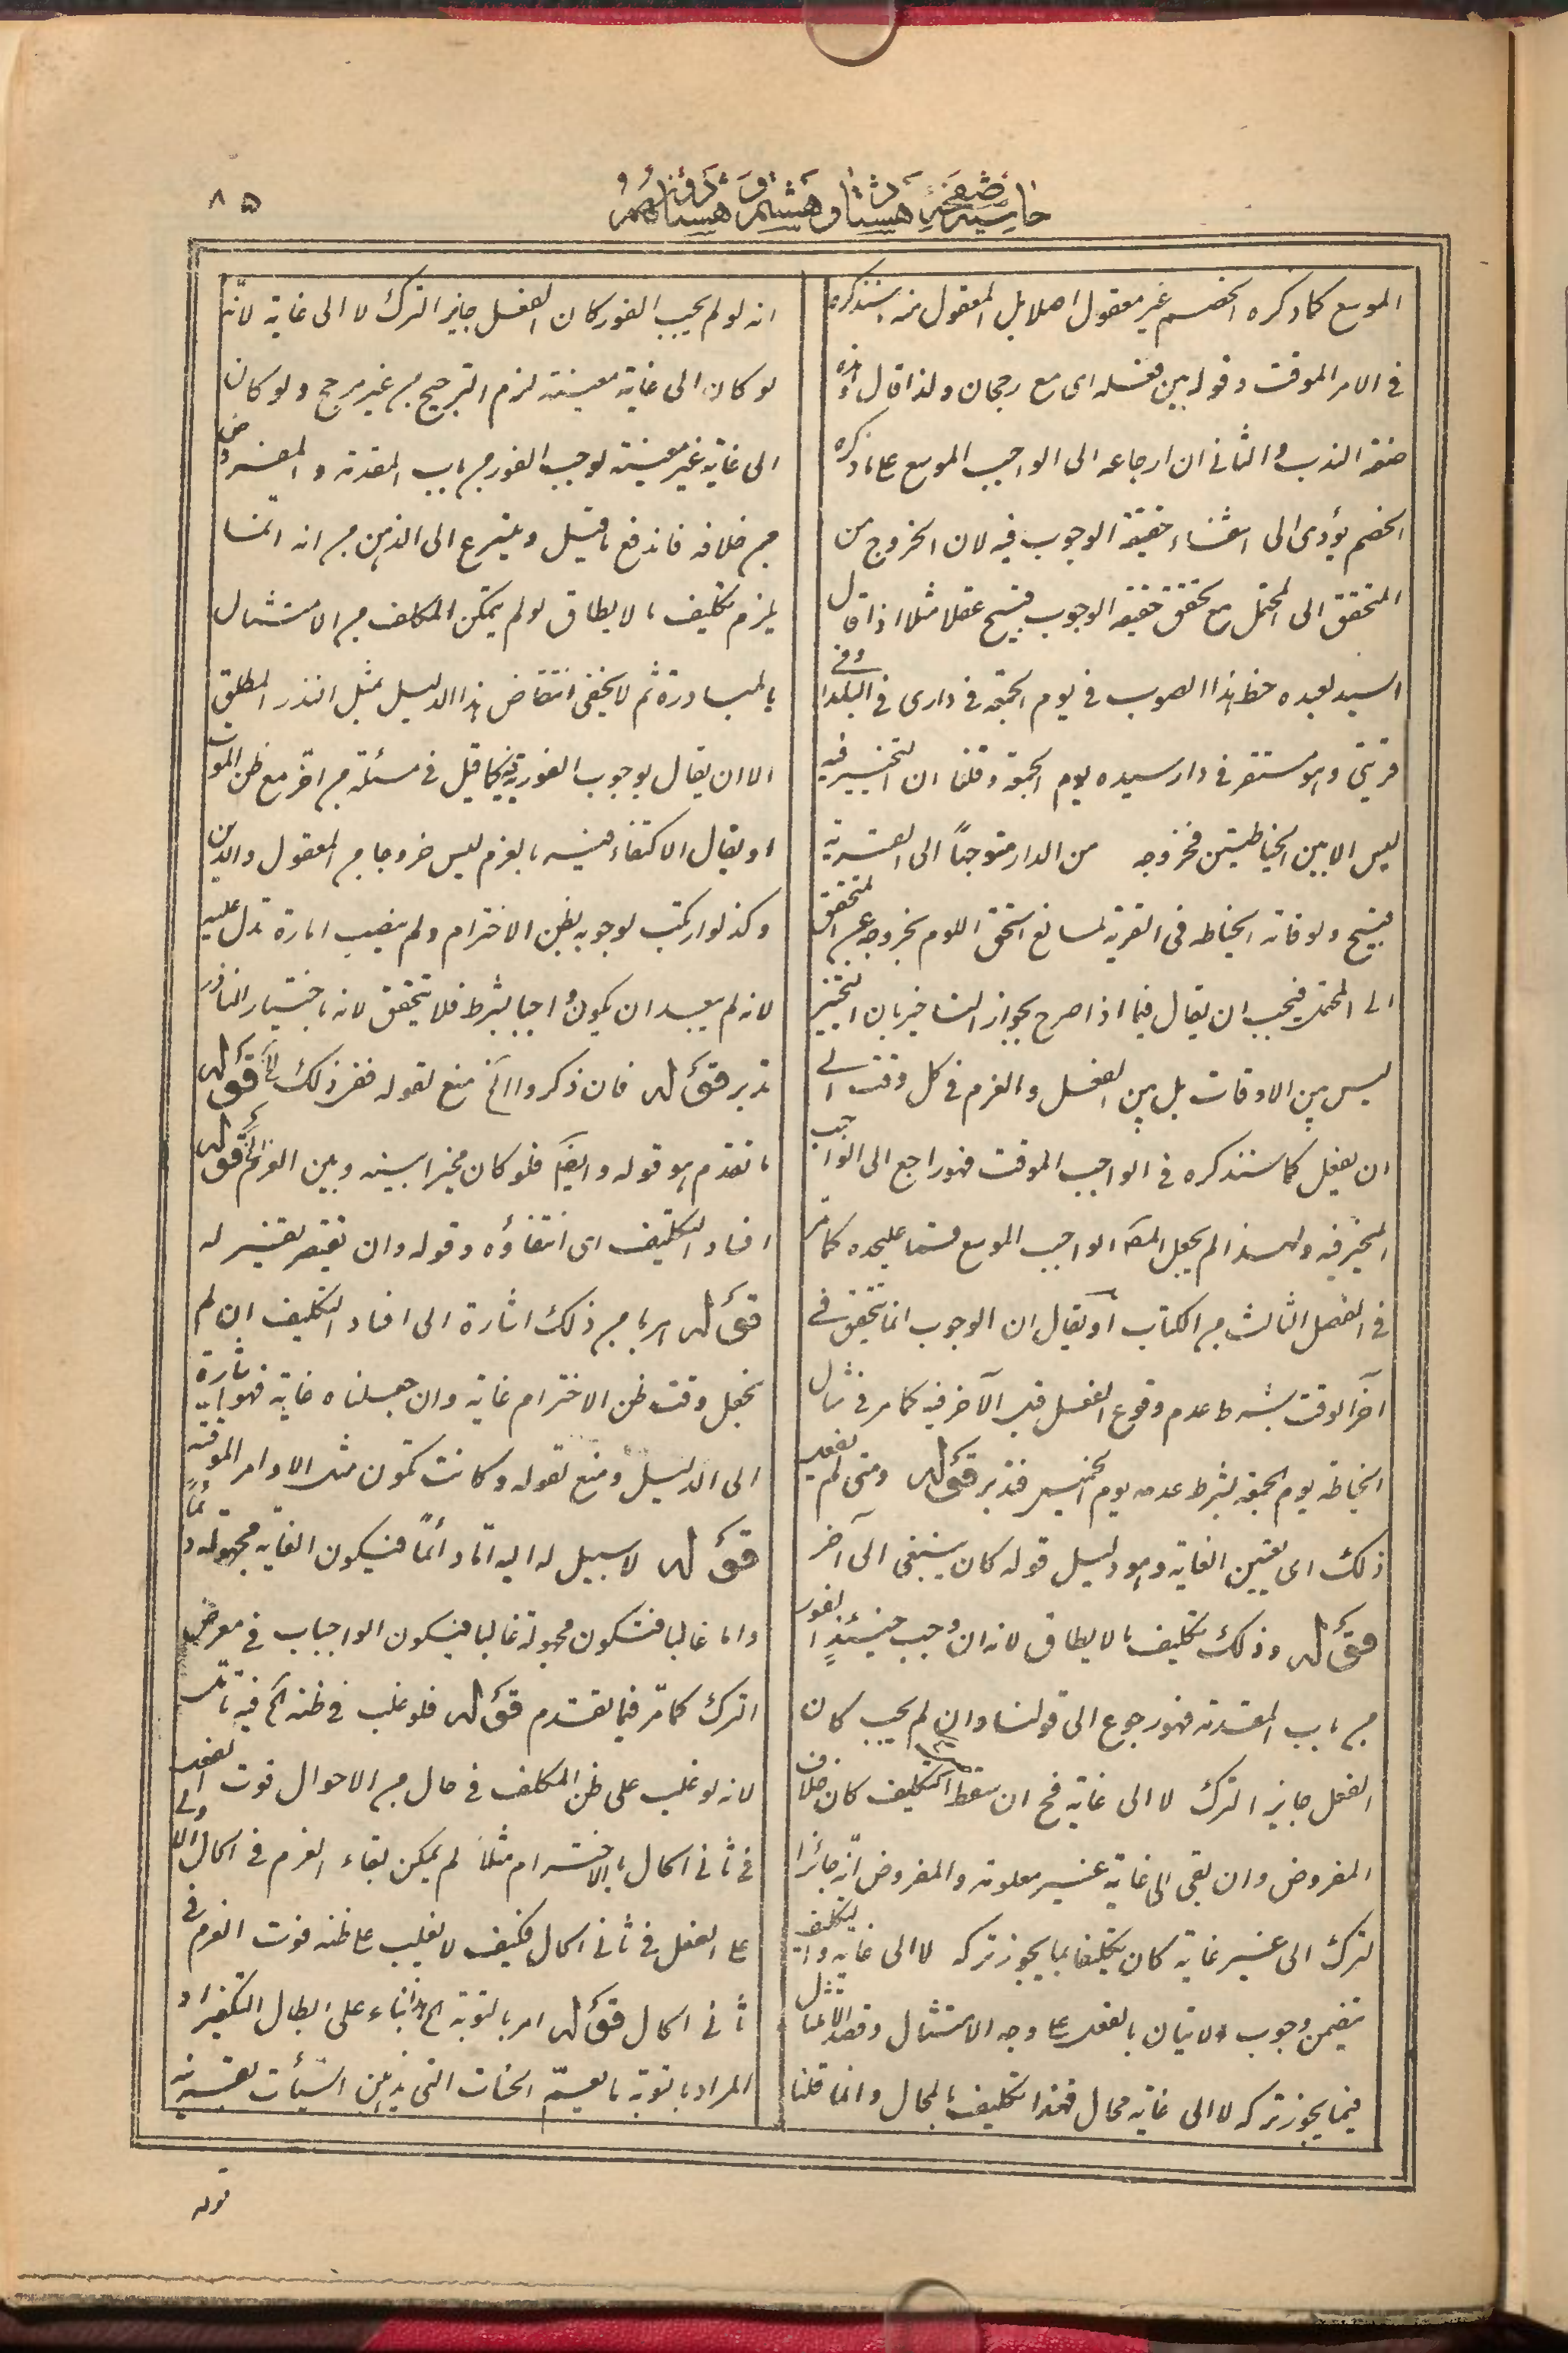 ٨٥
حاشية صفحة هشتاد و هشتم و هشتاد و نهم
الموسع كما ذكره الخصم غير معقول اصلا بل المعقول منه سنذكره
في الامر الموقت وقوله بين فعله اى مع رجحان ولذا قال
صفة الندب والثاني ان ارجاعه الى الواجب الموسع على ما ذكره
الخصم يؤدى الى انتفاء حقيقة الوجوب فيه لان الخروج من
المتحقق الى المحتمل مع تحقق حقيقة الوجوب قبيح عقلا مثلا اذا قال
السيد لعبده خط هذا الثوب في يوم الجمعة في دارى في البلد او في
قريتى وهو مستقر في دار سيده يوم الجمعة وقلنا ان التخيير فيه
ليس الا بين الخياطتين فخروجه من الدار متوجهاً الى القرية
قبيح ولو فاته الخياطه في القرية لمانع استحق اللوم بخروجه عن المتحقق
الى المحتمل فيجب ان يقال فيما اذا صرح بجواز التاخير بان التخيير
ليس بين الاوقات بل بين الفعل والعزم في كل وقت الى
ان يفعل كما سنذكره في الواجب الموقت فهو راجع الى الواجب
المخير فيه ولهذا لم يجعل المصـ الواجب الموسع قسما عليحده كما مر
في الفصل الثالث من الكتاب او يقال ان الوجوب انما يتحقق في
آخر الوقت بشرط عدم وقوع الفعل قبل الآخر فيه كما مر في مثال
الخياطة يوم الجمعة بشرط عدمه يوم الخميس فتدبر قوله ومتى لم يفعل
ذلك اى تعيين الغاية وهو دليل قوله كان ينبغى الى آخر
قوله وذلك تكليف ما لا يطاق لانه ان وجب حينئذٍ الفور
من باب المقدمة فهو رجوع الى قولنا وان لم يجب كان
الفعل جايز الترك لا الى غاية فح ان سقط التكليف كان خلاف
المفروض وان بقى الى غاية غير معلومة والمفروض انه جائز
الترك الى غير غاية كان تكليفا بما يجوز تركه لا الى غاية والتكليف
يتضمن وجوب الاتيان بالفعل على وجه الامتثال وقصد الامتثال
فيما يجوز تركه لا الى غاية محال فهذا تكليف بالمحال وانما قلنا
انه لو لم يجب الفور كان الفعل جايز الترك لا الى غاية لانه
لو كان الى غاية معينة لزم الترجيح من غير مرجح ولو كان
الى غاية غير معينة لوجب الفور من باب المقدمة والمفروض
من خلافه فاندفع ما قيل ويتسرع الى الذهن من انه انما
يلزم تكليف ما لا يطاق لو لم يتمكن المكلف من الامتثال
بالمبادرة ثم لا يخفى انتقاض هذا الدليل بمثل النذر المطلق
الا ان يقال بوجوب الفورية فيه كما قيل في مسئلة من اخر مع ظن الموت
او يقال الاكتفاء فيه بالعزم ليس خروجا من المعقول والدين
وكذ لو ارتكب لوجوبه بظن الاخترام ولم ينصب امارة تدل عليه
لانه لم يبعد ان يكون واجبا بشرط فلا يتحقق لانه باختيار الناذر
تدبر قوله فان ذكروا الخ منع لقوله فقر ذلك الخ قوله
ما تقدم هو قوله وايضا فلو كان مخيرا بينه وبين العزم الخ قوله
افساد التكليف اى انتفاؤه وقوله وان تقيض تفسير له
قوله هربا من ذلك اشارة الى افساد التكليف ان لم
نجعل وقت ظن الاخترام غاية وان جعلناه غاية فهو اشارة
الى الدليل ومنع لقوله وكانت تكون مثل الاوامر الموقتة
قوله لا سبيل له اليه اما دائماً فيكون الغاية مجهولة دائماً
واما غالبا فتكون مجهولة غالبا فيكون الواجبات في معرض
الترك كما مر فيما تقدم قوله فلو غلب في ظنه الخ فيه تامل
لانه لو غلب على ظن المكلف في حال من الاحوال فوت الفعل
في ثاني الحال بالاخترام مثلا لم يمكن بقاء العزم في الحال الاولى
على الفعل في ثاني الحال فكيف لا يغلب على ظنه فوت العزم في
ثاني الحال قوله امر بالتوبة الخ بناء على ابطال التكفير او
المراد بالتوبة ما يعم الحسنات التى يذهبن السيئات بقرينة
قوله